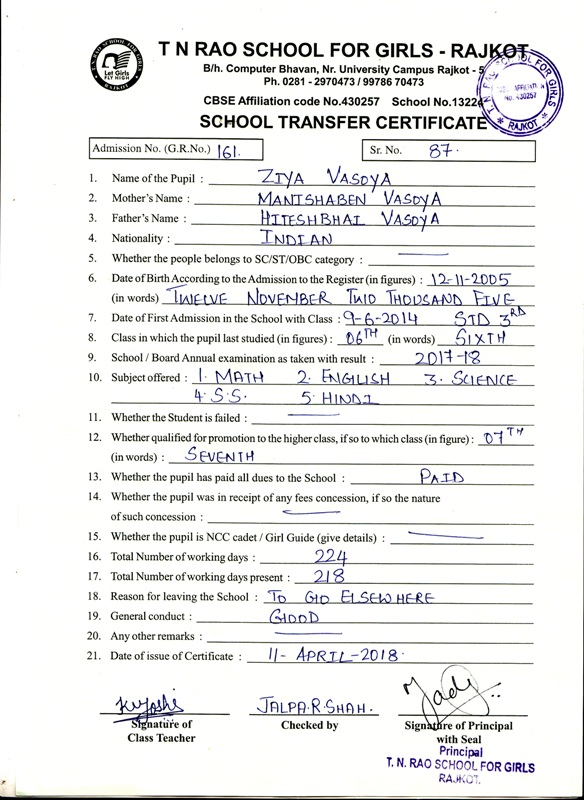 T. N. RAO SCHOOL FOR GIRLS
Let Girls
FLY HIGH
RAJKOT
T N RAO SCHOOL FOR GIRLS - RAJKOT
B/h. Computer Bhavan, Nr. University Campus Rajkot - 5
Ph. 0281 - 2970473 / 99786 70473
CBSE Affiliation code No.430257 School No.13224
T. N. RAO SCHOOL FOR GIRLS
No. 430257
* RAJKOT *
SCHOOL TRANSFER CERTIFICATE
Admission No. (G.R.No.) 161. Sr. No. 87.
1. Name of the Pupil : ZIYA VASOYA
2. Mother's Name : MANISHABEN VASOYA
3. Father's Name : HITESHBHAI VASOYA
4. Nationality : INDIAN
5. Whether the people belongs to SC/ST/OBC category :
6. Date of Birth According to the Admission to the Register (in figures) : 12-11-2005
(in words) TWELVE NOVEMBER TWO THOUSAND FIVE
7. Date of First Admission in the School with Class : 9-6-2014 STD 3RD
8. Class in which the pupil last studied (in figures) : 06TH (in words) SIXTH
9. School / Board Annual examination as taken with result : 2017-18
10. Subject offered : 1. MATH 2. ENGLISH 3. SCIENCE
4. S.S. 5. HINDI
11. Whether the Student is failed :
12. Whether qualified for promotion to the higher class, if so to which class (in figure) : 07TH
(in words) : SEVENTH
13. Whether the pupil has paid all dues to the School : PAID
14. Whether the pupil was in receipt of any fees concession, if so the nature
of such concession :
15. Whether the pupil is NCC cadet / Girl Guide (give details) :
16. Total Number of working days : 224
17. Total Number of working days present : 218
18. Reason for leaving the School : TO GO ELSEWHERE
19. General conduct : GOOD
20. Any other remarks :
21. Date of issue of Certificate : 11- APRIL-2018.
JALPA.R.SHAH.
Signature of
Class Teacher
Checked by
Signature of Principal
with Seal
Principal
T. N. RAO SCHOOL FOR GIRLS
RAJKOT.